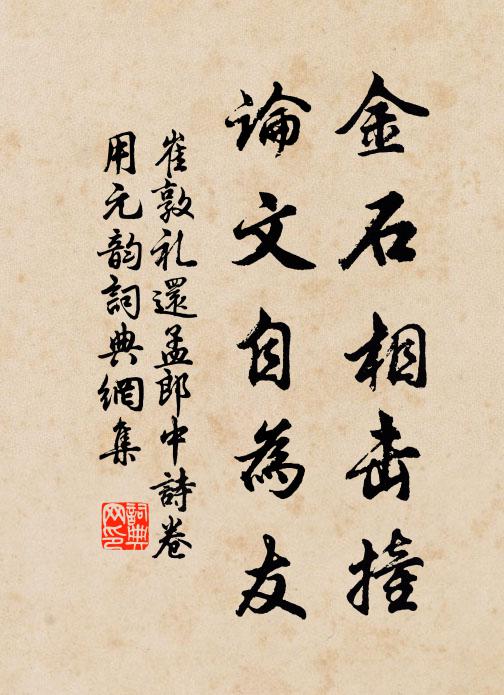 金石相击撞
論文自為友
崔敦礼還孟郎中詩卷
用元韵詞典網集
詞典网印